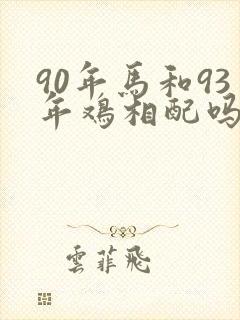 90年馬和93
年鸡相配吗
雲菲飛